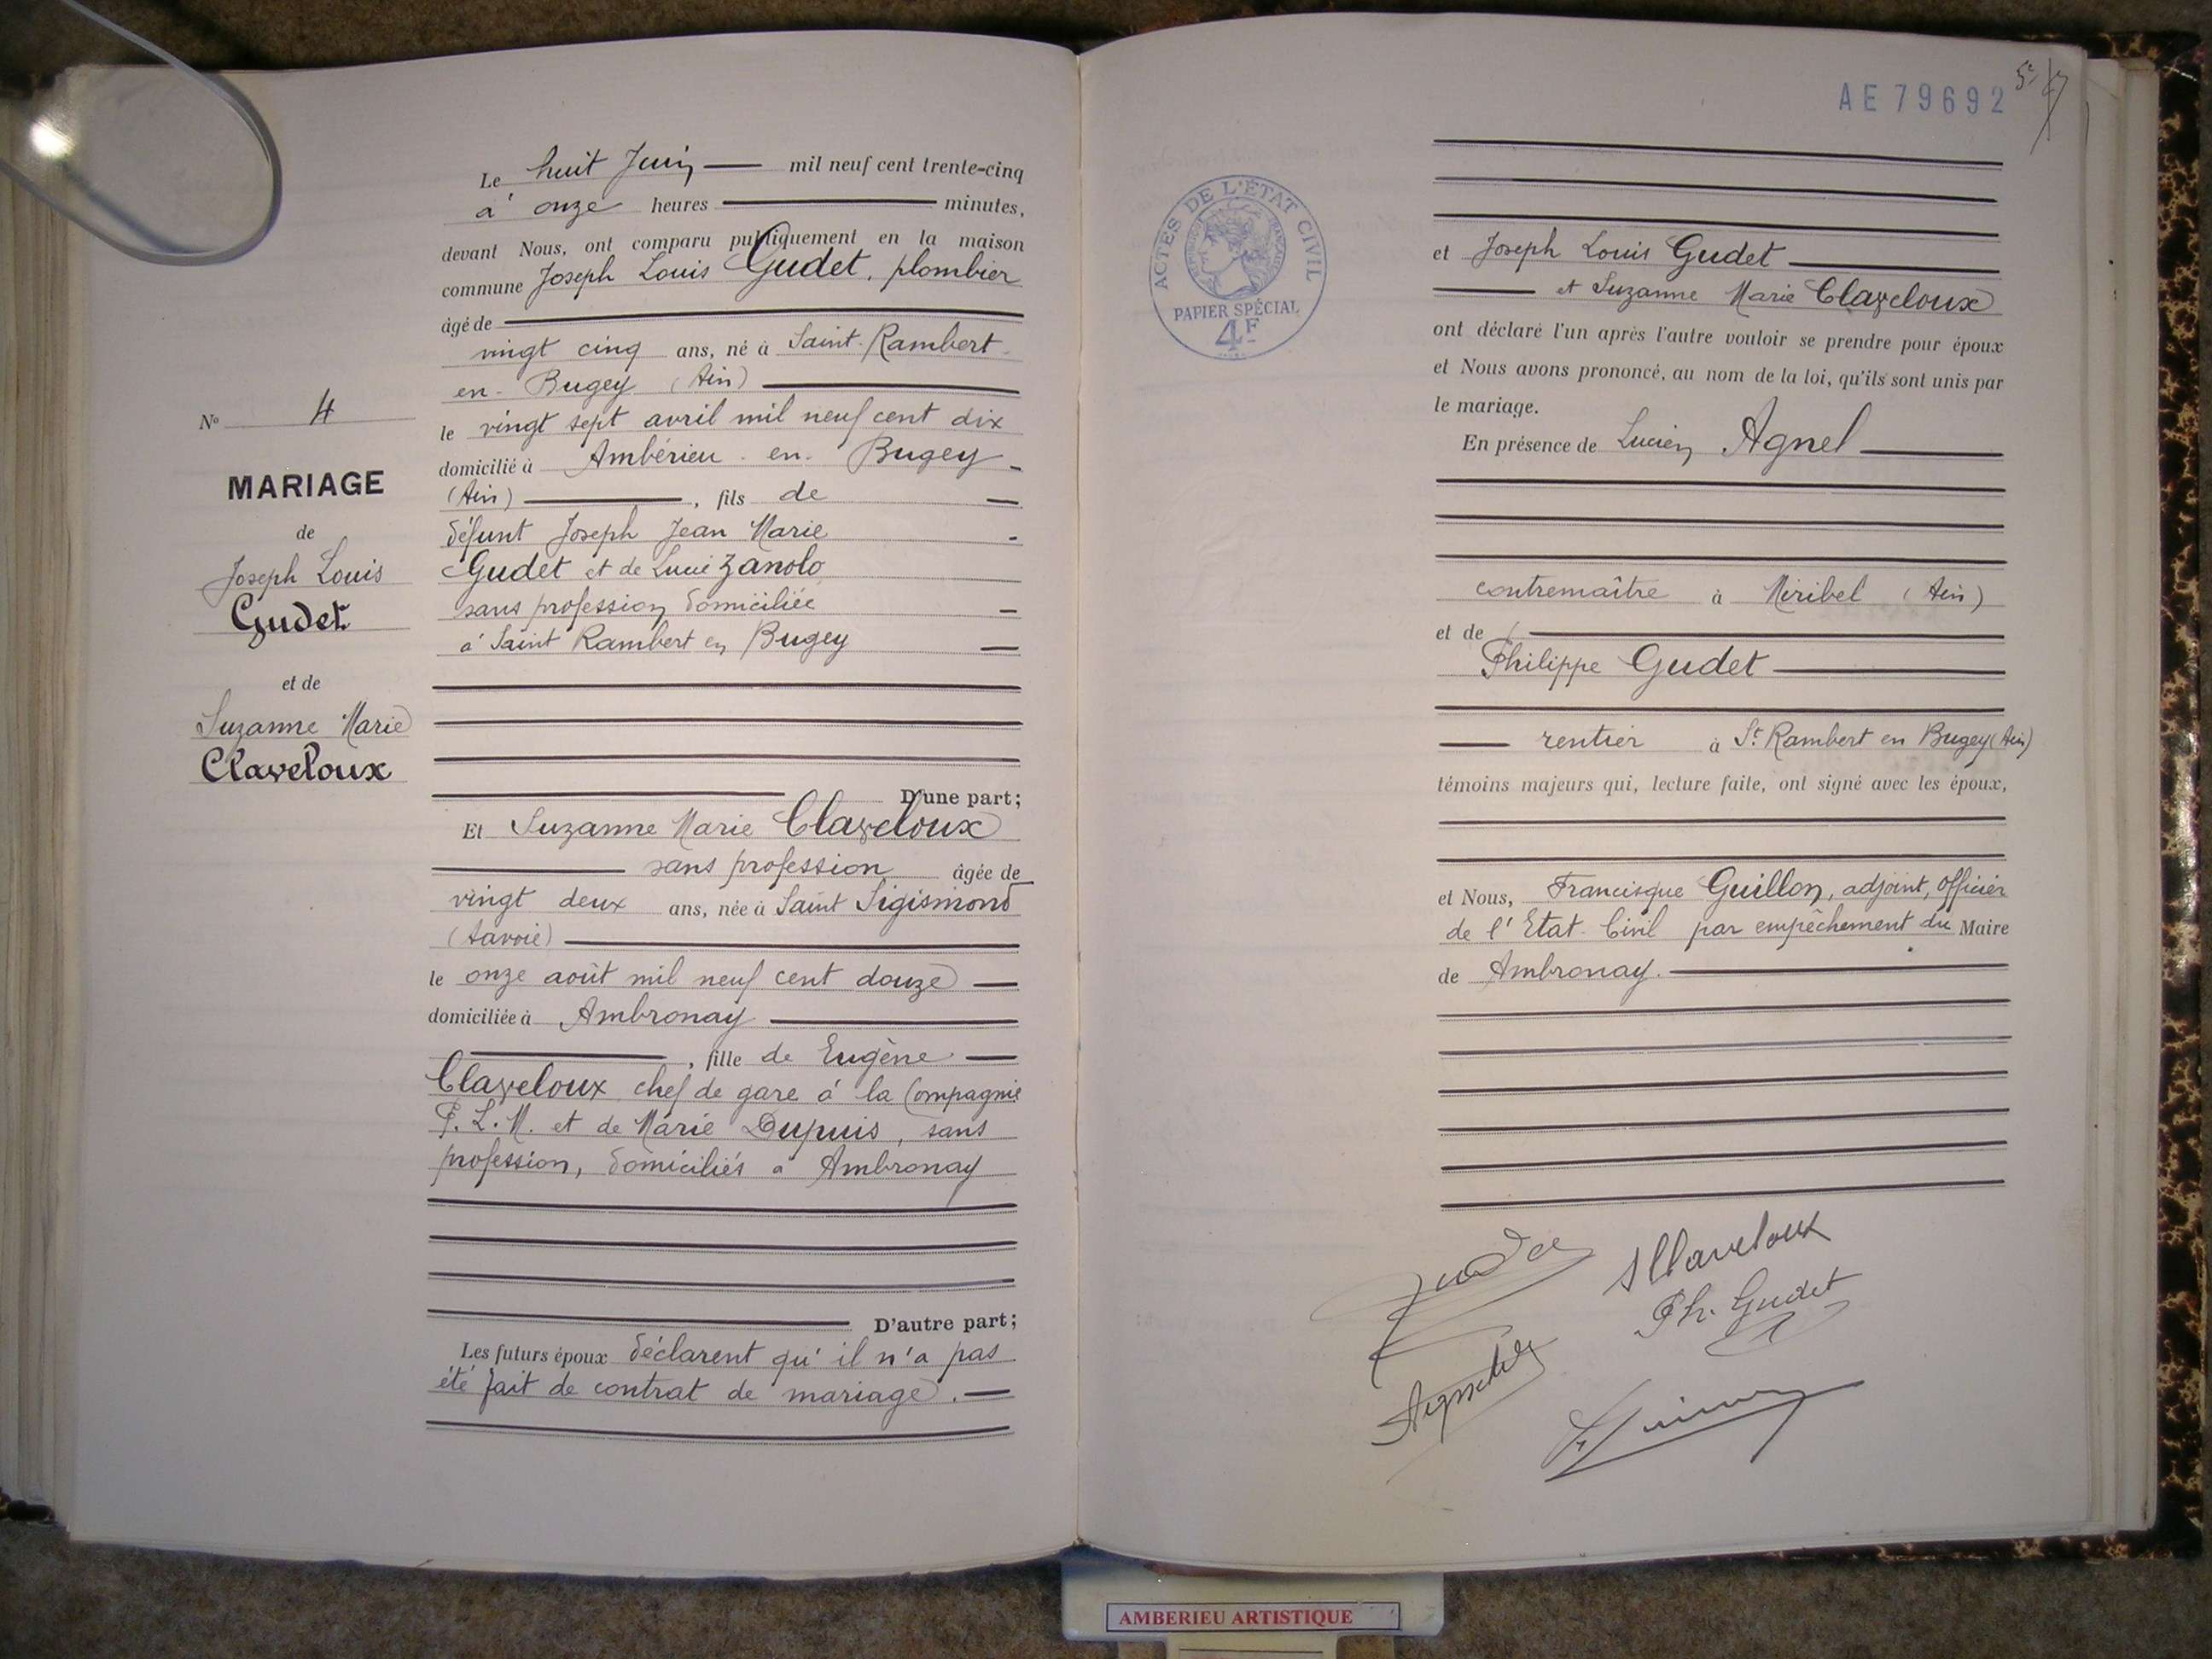 N° 4
MARIAGE
de
Joseph Louis
Gudet
et de
Suzanne Marie
Claveloux
Le huit Juin mil neuf cent trente-cinq
à onze heures minutes,
devant Nous, ont comparu publiquement en la maison
commune Joseph Louis Gudet, plombier
âgé de
vingt cinq ans, né à Saint-Rambert-
en-Bugey (Ain)
le vingt sept avril mil neuf cent dix
domicilié à Ambérieu-en-Bugey
(Ain), fils de
défunt Joseph Jean Marie
Gudet et de Lucie Zanolo
sans profession domiciliée
à Saint Rambert en Bugey
D'une part;
Et Suzanne Marie Claveloux
sans profession âgée de
vingt deux ans, née à Saint Sigismond
(Savoie)
le onze août mil neuf cent douze
domiciliée à Ambronay
, fille de Eugène
Claveloux chef de gare à la Compagnie
P.L.M. et de Marie Dupuis, sans
profession, domiciliés à Ambronay
D'autre part;
Les futurs époux déclarent qu'il n'a pas
été fait de contrat de mariage.
AE 79692
ACTES DE L'ÉTAT CIVIL
RÉPUBLIQUE FRANÇAISE
PAPIER SPÉCIAL
4F
et Joseph Louis Gudet
et Suzanne Marie Claveloux
ont déclaré l'un après l'autre vouloir se prendre pour époux
et Nous avons prononcé, au nom de la loi, qu'ils sont unis par
le mariage.
En présence de Lucien Agnel
contremaître à Miribel (Ain)
et de
Philippe Gudet
rentier à St Rambert en Bugey (Ain)
témoins majeurs qui, lecture faite, ont signé avec les époux,
et Nous, Francisque Guillon, adjoint, officier
de l'Etat-Civil par empêchement du Maire
de Ambronay.
Gudet
SClaveloux
Ph. Gudet
AMBERIEU ARTISTIQUE